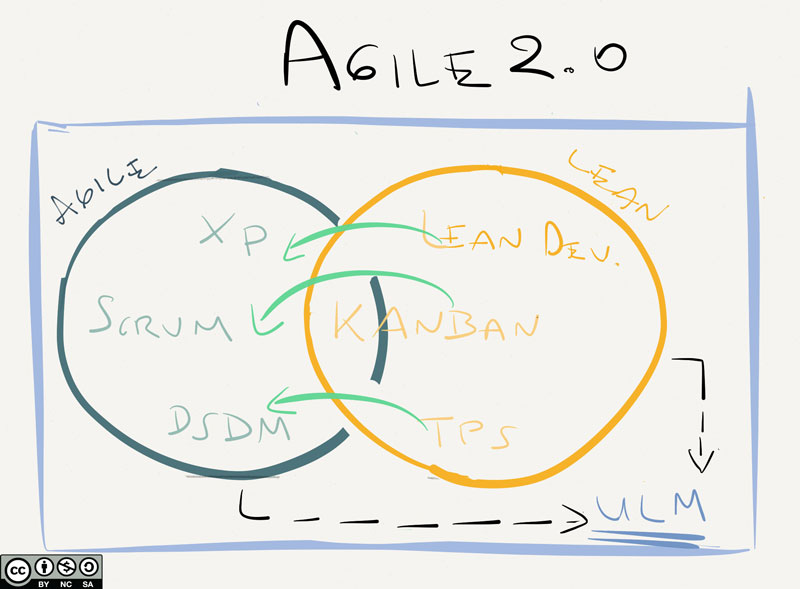 AGILE 2.0
AGILE
LEAN
XP
LEAN DEV.
SCRUM
KANBAN
DSDM
TPS
ULM
cc
BY NC SA